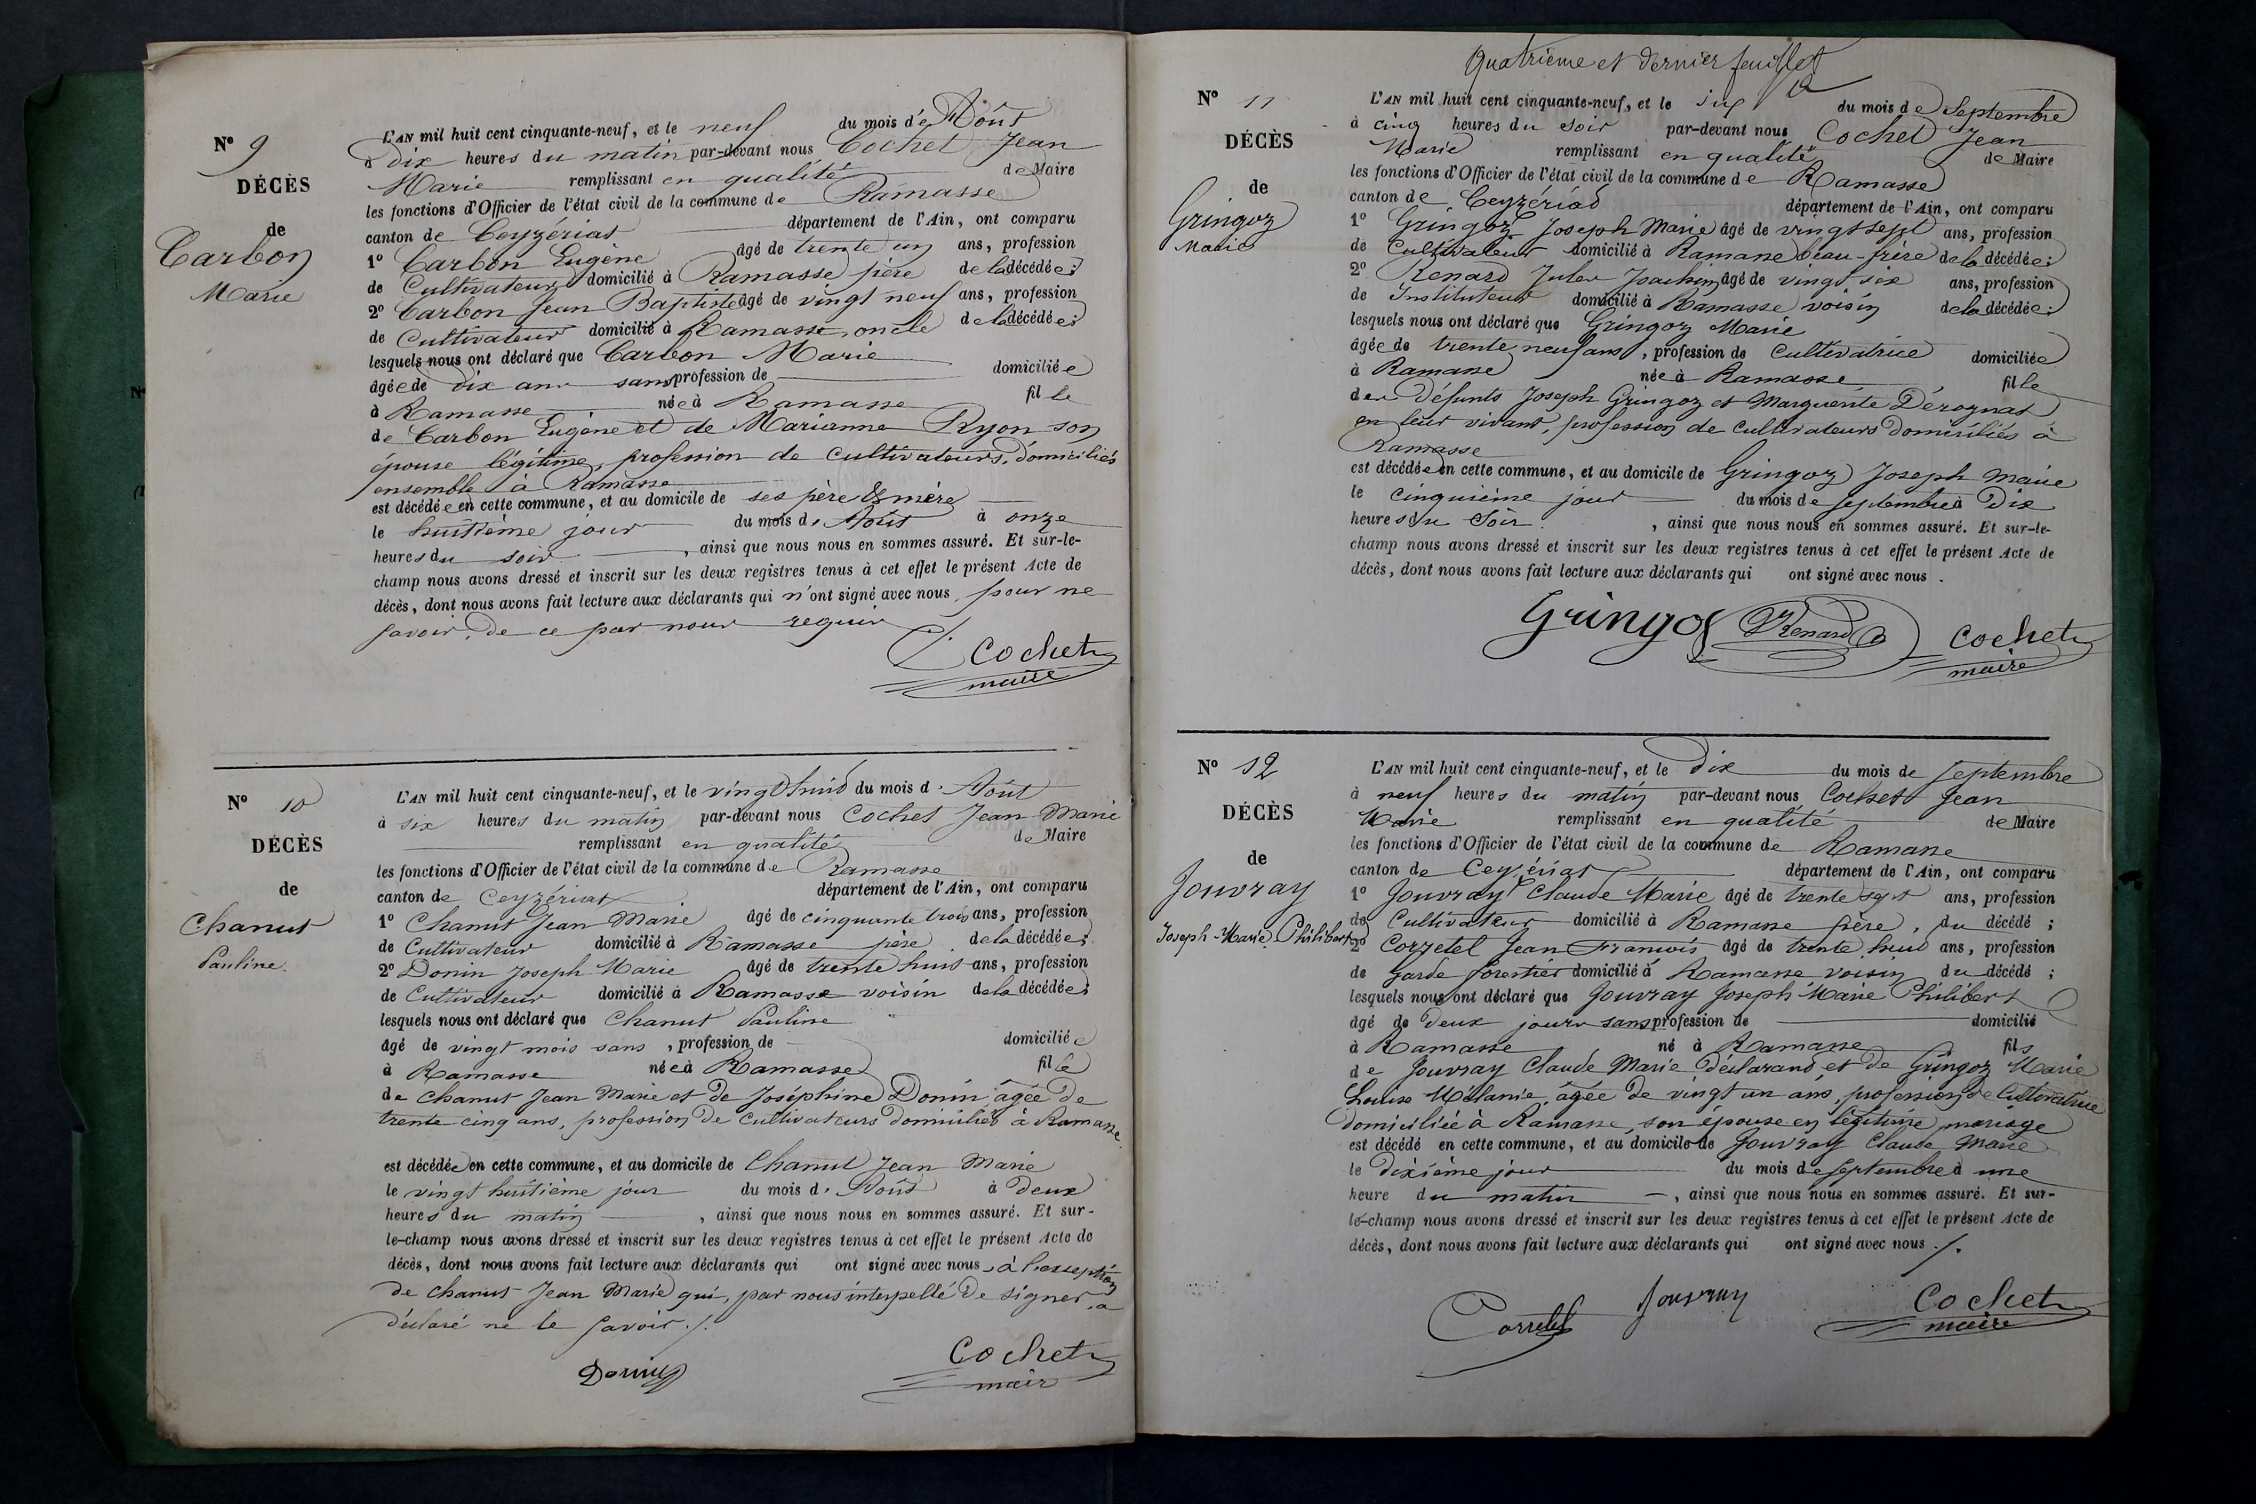 Nº 9
DÉCÈS
de
Carbon
Marie
L'AN mil huit cent cinquante-neuf, et le neuf du mois d'Août
à dix heures du matin par-devant nous Cochet Jean
Marie remplissant en qualité de Maire
les fonctions d'Officier de l'état civil de la commune de Ramasse
canton de Ceyzériat département de l'Ain, ont comparu
1º Carbon Eugène âgé de trente un ans, profession
de Cultivateur domicilié à Ramasse père de la décédée;
2º Carbon Jean Baptiste âgé de vingt neuf ans, profession
de Cultivateur domicilié à Ramasse, oncle de la décédée;
lesquels nous ont déclaré que Carbon Marie
âgée de dix ans sans profession de domiciliée
à Ramasse née à Ramasse fille
de Carbon Eugène et de Marianne Ryon son
épouse légitime, profession de cultivateurs, domiciliés
ensemble à Ramasse
est décédée en cette commune, et au domicile de ses père & mère
le huitième jour du mois d'Août à onze
heures du soir, ainsi que nous nous en sommes assuré. Et sur-le-
champ nous avons dressé et inscrit sur les deux registres tenus à cet effet le présent Acte de
décès, dont nous avons fait lecture aux déclarants qui n'ont signé avec nous, pour ne
savoir, de ce par nous requis ./.
Cochet
maire
Nº 10
DÉCÈS
de
Chanut
Pauline.
L'AN mil huit cent cinquante-neuf, et le vingt huit du mois d'Août
à six heures du matin par-devant nous Cochet Jean Marie
remplissant en qualité de Maire
les fonctions d'Officier de l'état civil de la commune de Ramasse
canton de Ceyzériat département de l'Ain, ont comparu
1º Chanut Jean Marie âgé de cinquante trois ans, profession
de Cultivateur domicilié à Ramasse père de la décédée;
2º Donin Joseph Marie âgé de trente huit ans, profession
de Cultivateur domicilié à Ramasse voisin de la décédée;
lesquels nous ont déclaré que Chanut Pauline
âgé de vingt mois sans, profession de domiciliée
à Ramasse née à Ramasse fille
de Chanut Jean Marie et de Joséphine Donin âgée de
trente cinq ans, profession de cultivateurs domiciliés à Ramasse
est décédée en cette commune, et au domicile de Chanut Jean Marie
le vingt huitième jour du mois d'Août à deux
heures du matin, ainsi que nous nous en sommes assuré. Et sur-
le-champ nous avons dressé et inscrit sur les deux registres tenus à cet effet le présent Acte de
décès, dont nous avons fait lecture aux déclarants qui ont signé avec nous, à l'exseption
de Chanut Jean Marie qui, par nous interpellé de signer, a
déclaré ne le savoir ./.
Donin
Cochet
mair
Quatrième et dernier feuillet
Nº 11
DÉCÈS
de
Gringoz
Marie
L'AN mil huit cent cinquante-neuf, et le six du mois de Septembre
à cinq heures du soir par-devant nous Cochet Jean
Marie remplissant en qualité de Maire
les fonctions d'Officier de l'état civil de la commune de Ramasse
canton de Ceyzériat département de l'Ain, ont comparu
1º Gringoz Joseph Marie âgé de vingt sept ans, profession
de Cultivateur domicilié à Ramasse beau-frère de la décédée;
2º Renard Jules Joachim âgé de vingt six ans, profession
de Instituteur domicilié à Ramasse voisin de la décédée;
lesquels nous ont déclaré que Gringoz Marie
âgée de trente neuf ans, profession de cultivatrice domiciliée
à Ramasse née à Ramasse fille
des défunts Joseph Gringoz et Marguerite Dérognat
en leur vivant, profession de cultivateurs domiciliés à
Ramasse
est décédée en cette commune, et au domicile de Gringoz Joseph Marie
le cinquième jour du mois de Septembre à Dix
heures du soir, ainsi que nous nous en sommes assuré. Et sur-le-
champ nous avons dressé et inscrit sur les deux registres tenus à cet effet le présent Acte de
décès, dont nous avons fait lecture aux déclarants qui ont signé avec nous.
Gringoz
Renard
Cochet
maire
Nº 12
DÉCÈS
de
Jouvray
Joseph-Marie Philibert
L'AN mil huit cent cinquante-neuf, et le dix du mois de Septembre
à neuf heures du matin par-devant nous Cochet Jean
Marie remplissant en qualité de Maire
les fonctions d'Officier de l'état civil de la commune de Ramasse
canton de Ceyzériat département de l'Ain, ont comparu
1º Jouvray Claude Marie âgé de trente sept ans, profession
de Cultivateur domicilié à Ramasse père, du décédé;
2º Corretel Jean François âgé de trente huit ans, profession
de garde forestier domicilié à Ramasse voisin du décédé;
lesquels nous ont déclaré que Jouvray Joseph Marie Philibert
âgé de deux jours sans profession de domicilié
à Ramasse né à Ramasse fils
de Jouvray Claude Marie déclarand et de Gringoz Marie
Louise Mélanie, âgée de vingt un ans, profession de Cultivatrice
domiciliée à Ramasse, son épouse en légitime mariage
est décédé en cette commune, et au domicile de Jouvray Claude Marie
le dixième jour du mois de Septembre à une
heure du matin, ainsi que nous nous en sommes assuré. Et sur-
le-champ nous avons dressé et inscrit sur les deux registres tenus à cet effet le présent Acte de
décès, dont nous avons fait lecture aux déclarants qui ont signé avec nous ./.
Corretel
Jouvray
Cochet
maire